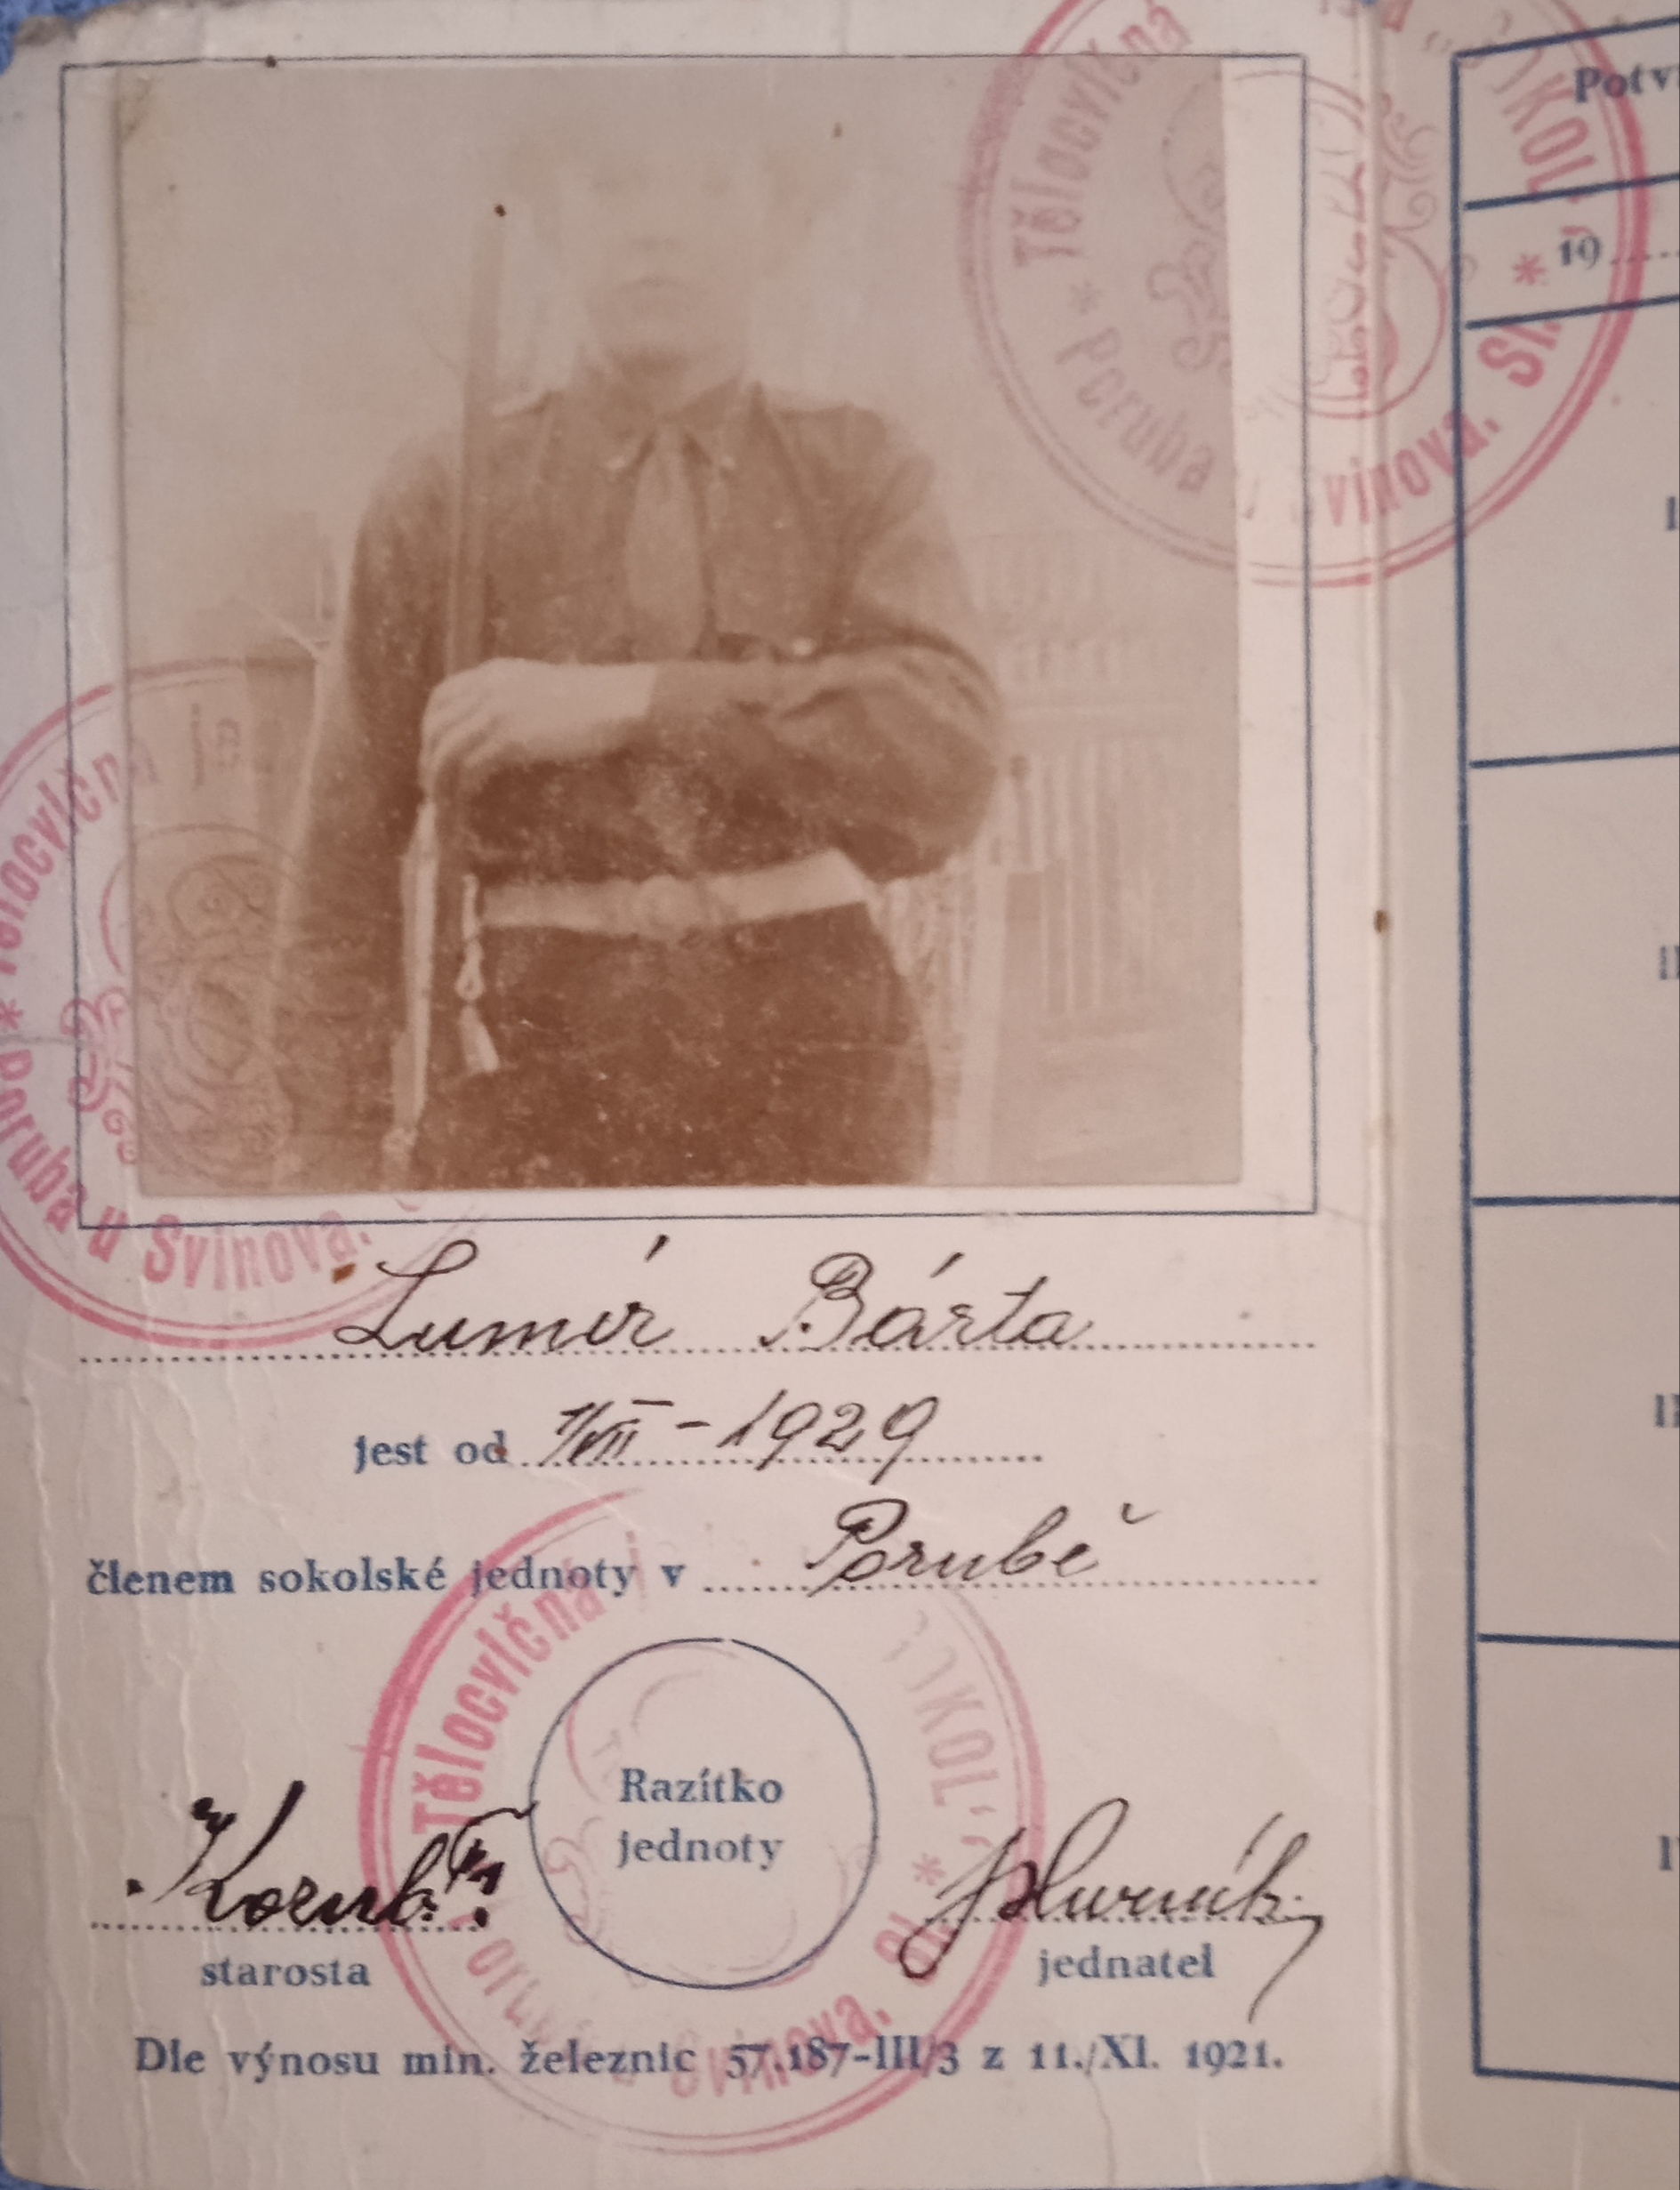 Tělocvičná
SOKOL
* Poruba
vinova. Sl. *
Tělocvičná
* Poruba u Svinova.
Potv
19
Lumír Bárta
jest od 1/VII - 1929
členem sokolské jednoty v Porubě
Tělocvičná j
SOKOL" *
Svinova. Sl.
Razítko
jednoty
starosta
jednatel
Dle výnosu min. železnic 57.187-III/3 z 11./XI. 1921.